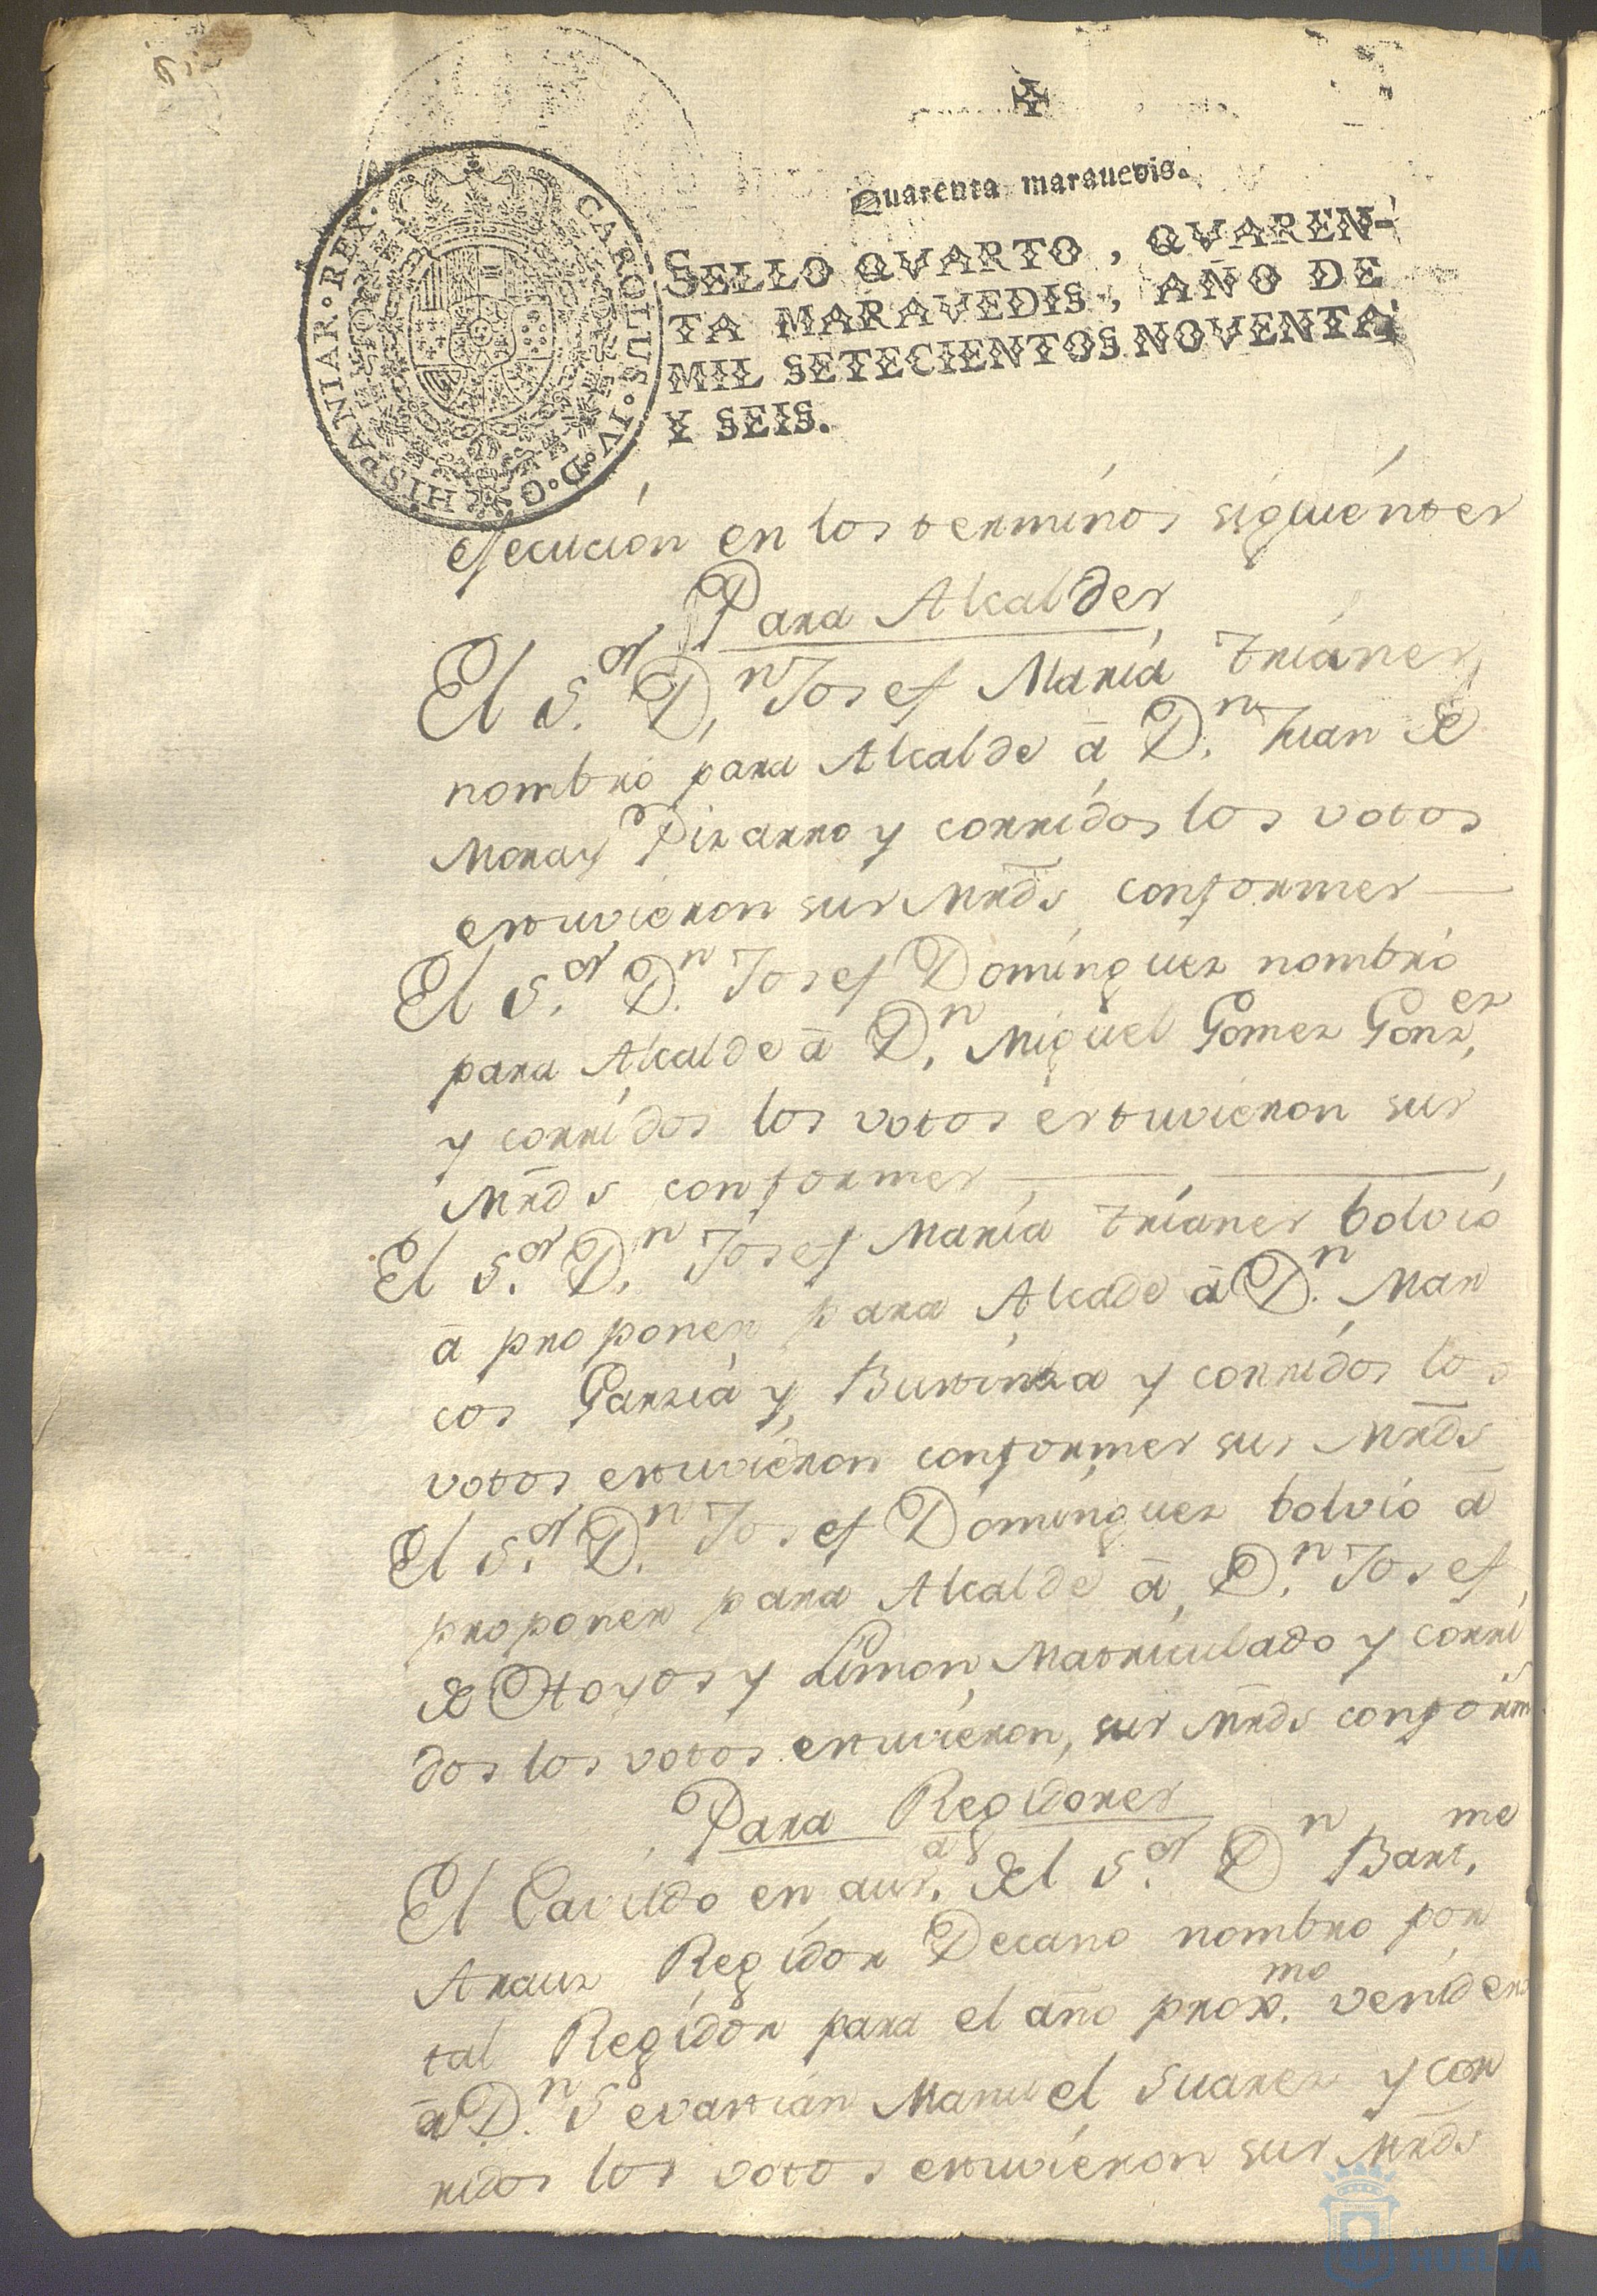 Quarenta marauedis.
SELLO QVARTO, QVAREN-
TA MARAVEDIS, AÑO DE
MIL SETECIENTOS NOVENTA
Y SEIS.
CAROLUS·IV·D·G·HISPANIAR·REX·
ejecucion en los terminos siguientes
Para Alcaldes
El S.or D.n Josef Maria Trianes
nombró para Alcalde ā D.n Juan de
Mora y Pizarro y corridos los votos
estuvieron sus Mrds conformes
El S.or D.n Josef Dominguez nombró
para Alcalde ā D.n Miguel Gomez Gonz.ez
y corridos los votos estuvieron sus
Mrds conformes
El S.or D.n Josef Maria Trianes bolvió
ā proponer para Alcade ā D.n Mar
cos Garzia y Bustinza y corridos los
votos estuvieron conformes sus Mrds
El S.or D.n Josef Dominguez bolvió ā
proponer para Alcalde ā D.n Josef
de Hoyos y Limon, Matriculado y corri
dos los votos estuvieron, sus Mrds conform
Para Regidores
El Cavildo en aus.a del S.or D.n Bart.me
Arauz Regidor Decano nombro por
tal Regidor para el año prox.mo venidero
ā D.n Sevastian Manuel Suarez y cor
ridos los votos estuvieron sus Mrds
HUELVA